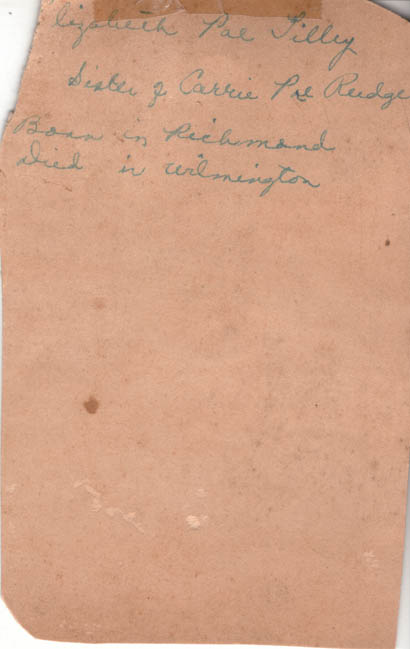 lizabeth Poe Tilley
Sister of Carrie Poe Rudge
Born in Richmond
Died in Wilmington